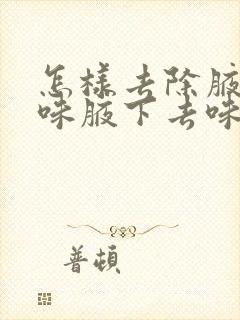 怎樣去除腋
味腋下去味
普頓